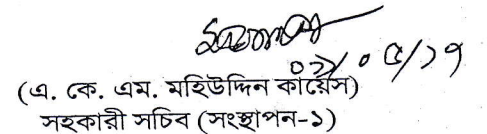 ০২/০৫/১৭
(এ. কে. এম. মহিউদ্দিন কায়েস)
সহকারী সচিব (সংস্থাপন-১)